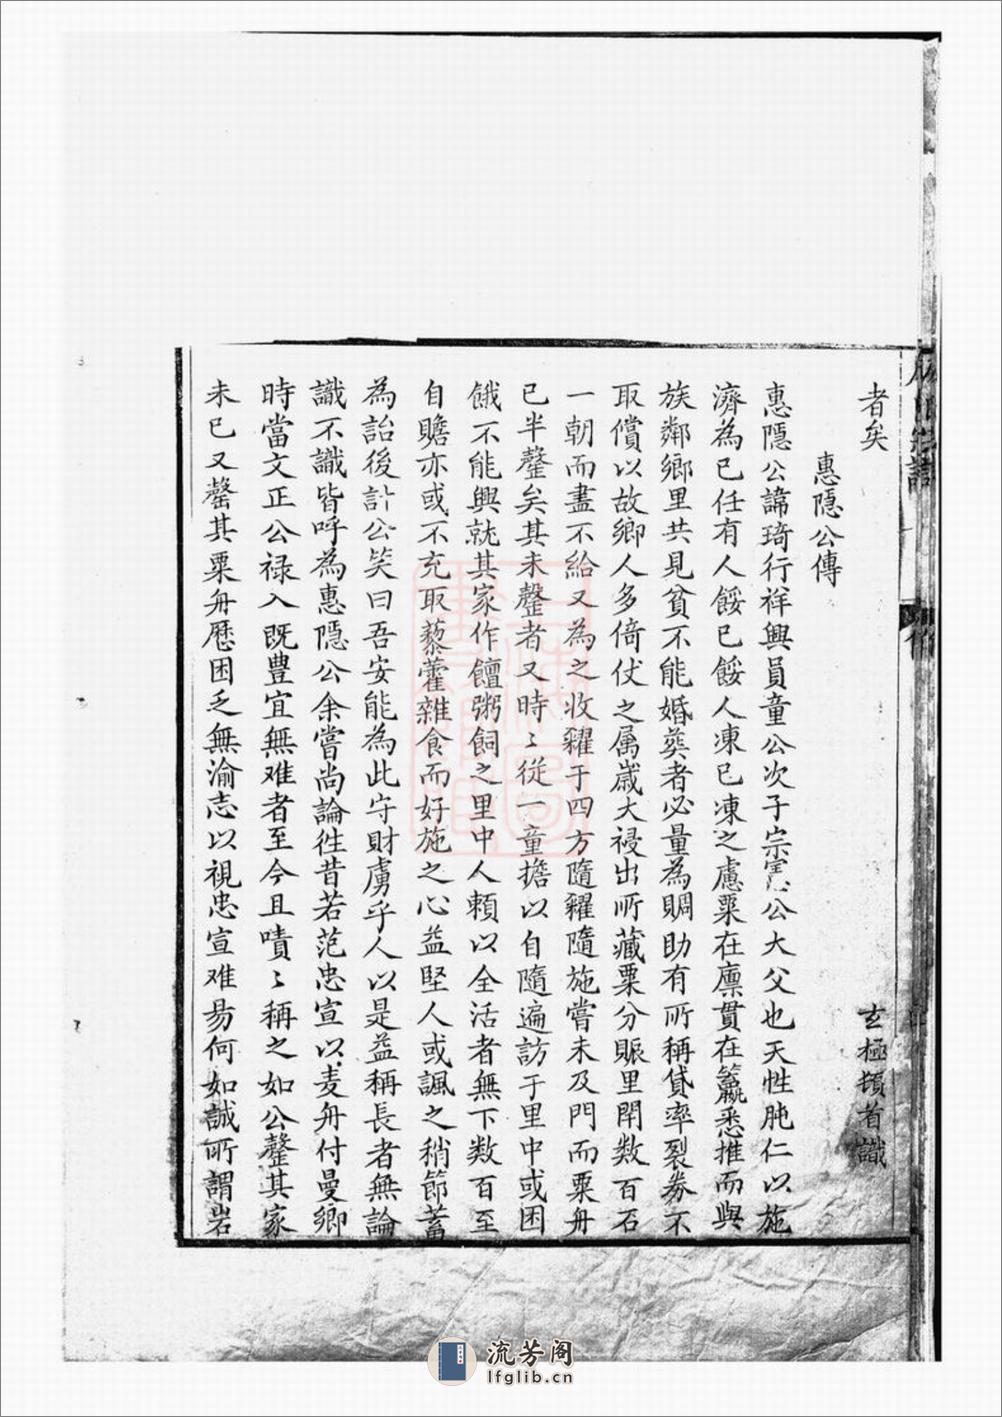 者矣
玄極頓首識
惠隱公傳
惠隱公諱琦行祥興員童公次子宗憲公大父也天性肫仁以施
濟為已任有人餒已餒人凍已凍之慮粟在廪貫在籯悉推而與
族鄰鄉里共見貧不能婚葬者必量為賙助有所稱貸率裂券不
取償以故鄉人多倚仗之属歲大祲出所藏粟分賑里閈数百石
一朝而盡不給又為之收糴于四方隨糴隨施嘗未及門而粟舟
已半罄矣其未罄者又時〻從一童擔以自隨遍訪于里中或困
餓不能興就其家作饘粥飼之里中人賴以全活者無下数百至
自贍亦或不充取藜藿雜食而好施之心益堅人或諷之稍節蓄
為詒後計公笑曰吾安能為此守財虜乎人以是益稱長者無論
識不識皆呼為惠隱公余嘗尚論徃昔若范忠宣以麦舟付曼卿
時當文正公禄入既豊宜無难者至今且嘖〻稱之如公罄其家
未已又罄其粟舟歷困乏無渝志以視忠宣难易何如誠所謂岩
流芳阁
lfglib.cn